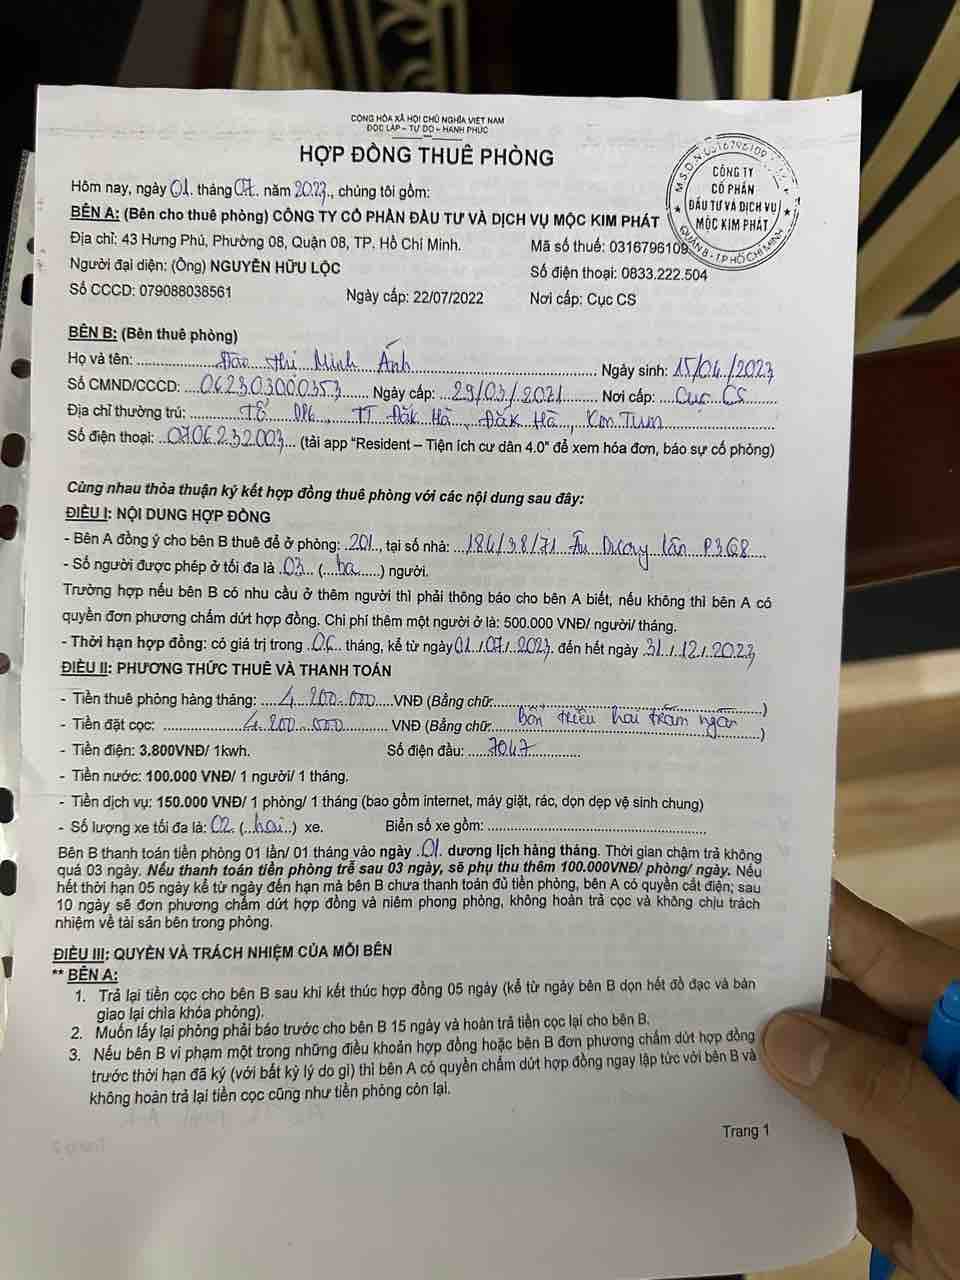 CỘNG HÒA XÃ HỘI CHỦ NGHĨA VIỆT NAM
ĐỘC LẬP – TỰ DO – HẠNH PHÚC
HỢP ĐỒNG THUÊ PHÒNG
M.S.D.N: 0316796109
CÔNG TY
CỔ PHẦN
ĐẦU TƯ VÀ DỊCH VỤ
MỘC KIM PHÁT
QUẬN 8 - T.P HỒ CHÍ MINH
Hôm nay, ngày 01. tháng 07. năm 2023., chúng tôi gồm:
BÊN A: (Bên cho thuê phòng) CÔNG TY CỔ PHẦN ĐẦU TƯ VÀ DỊCH VỤ MỘC KIM PHÁT
Địa chỉ: 43 Hưng Phú, Phường 08, Quận 08, TP. Hồ Chí Minh. Mã số thuế: 0316796109
Người đại diện: (Ông) NGUYỄN HỮU LỘC Số điện thoại: 0833.222.504
Số CCCD: 079088038561 Ngày cấp: 22/07/2022 Nơi cấp: Cục CS
BÊN B: (Bên thuê phòng)
Họ và tên: Đào Thị Minh Ánh Ngày sinh: 15/04/2023
Số CMND/CCCD: 062303000353 Ngày cấp: 29/03/2021 Nơi cấp: Cục CS
Địa chỉ thường trú: Tổ DP6, TT Đăk Hà, Đăk Hà, Kon Tum
Số điện thoại: 0706232003 (tải app "Resident – Tiện ích cư dân 4.0" để xem hóa đơn, báo sự cố phòng)
Cùng nhau thỏa thuận ký kết hợp đồng thuê phòng với các nội dung sau đây:
ĐIỀU I: NỘI DUNG HỢP ĐỒNG
- Bên A đồng ý cho bên B thuê để ở phòng: 201, tại số nhà: 184/38/71 Âu Dương Lân P3Q8
- Số người được phép ở tối đa là 03 (ba) người.
Trường hợp nếu bên B có nhu cầu ở thêm người thì phải thông báo cho bên A biết, nếu không thì bên A có
quyền đơn phương chấm dứt hợp đồng. Chi phí thêm một người ở là: 500.000 VNĐ/ người/ tháng.
- Thời hạn hợp đồng: có giá trị trong 06 tháng, kể từ ngày 01/07/2023. đến hết ngày 31/12/2023
ĐIỀU II: PHƯƠNG THỨC THUÊ VÀ THANH TOÁN
- Tiền thuê phòng hàng tháng: 4.200.000 VNĐ (Bằng chữ )
- Tiền đặt cọc: 4.200.000 VNĐ (Bằng chữ Bốn triệu hai trăm ngàn )
- Tiền điện: 3.800VNĐ/ 1kwh. Số điện đầu: 7047
- Tiền nước: 100.000 VNĐ/ 1 người/ 1 tháng.
- Tiền dịch vụ: 150.000 VNĐ/ 1 phòng/ 1 tháng (bao gồm internet, máy giặt, rác, dọn dẹp vệ sinh chung)
- Số lượng xe tối đa là: 02 (hai) xe. Biển số xe gồm:
Bên B thanh toán tiền phòng 01 lần/ 01 tháng vào ngày 01. dương lịch hàng tháng. Thời gian chậm trả không
quá 03 ngày. Nếu thanh toán tiền phòng trễ sau 03 ngày, sẽ phụ thu thêm 100.000VNĐ/ phòng/ ngày. Nếu
hết thời hạn 05 ngày kể từ ngày đến hạn mà bên B chưa thanh toán đủ tiền phòng, bên A có quyền cắt điện; sau
10 ngày sẽ đơn phương chấm dứt hợp đồng và niêm phong phòng, không hoàn trả cọc và không chịu trách
nhiệm về tài sản bên trong phòng.
ĐIỀU III: QUYỀN VÀ TRÁCH NHIỆM CỦA MỖI BÊN
** BÊN A:
1. Trả lại tiền cọc cho bên B sau khi kết thúc hợp đồng 05 ngày (kể từ ngày bên B dọn hết đồ đạc và bàn
giao lại chìa khóa phòng).
2. Muốn lấy lại phòng phải báo trước cho bên B 15 ngày và hoàn trả tiền cọc lại cho bên B.
3. Nếu bên B vi phạm một trong những điều khoản hợp đồng hoặc bên B đơn phương chấm dứt hợp đồng
trước thời hạn đã ký (với bất kỳ lý do gì) thì bên A có quyền chấm dứt hợp đồng ngay lập tức với bên B và
không hoàn trả lại tiền cọc cũng như tiền phòng còn lại.
Trang 1